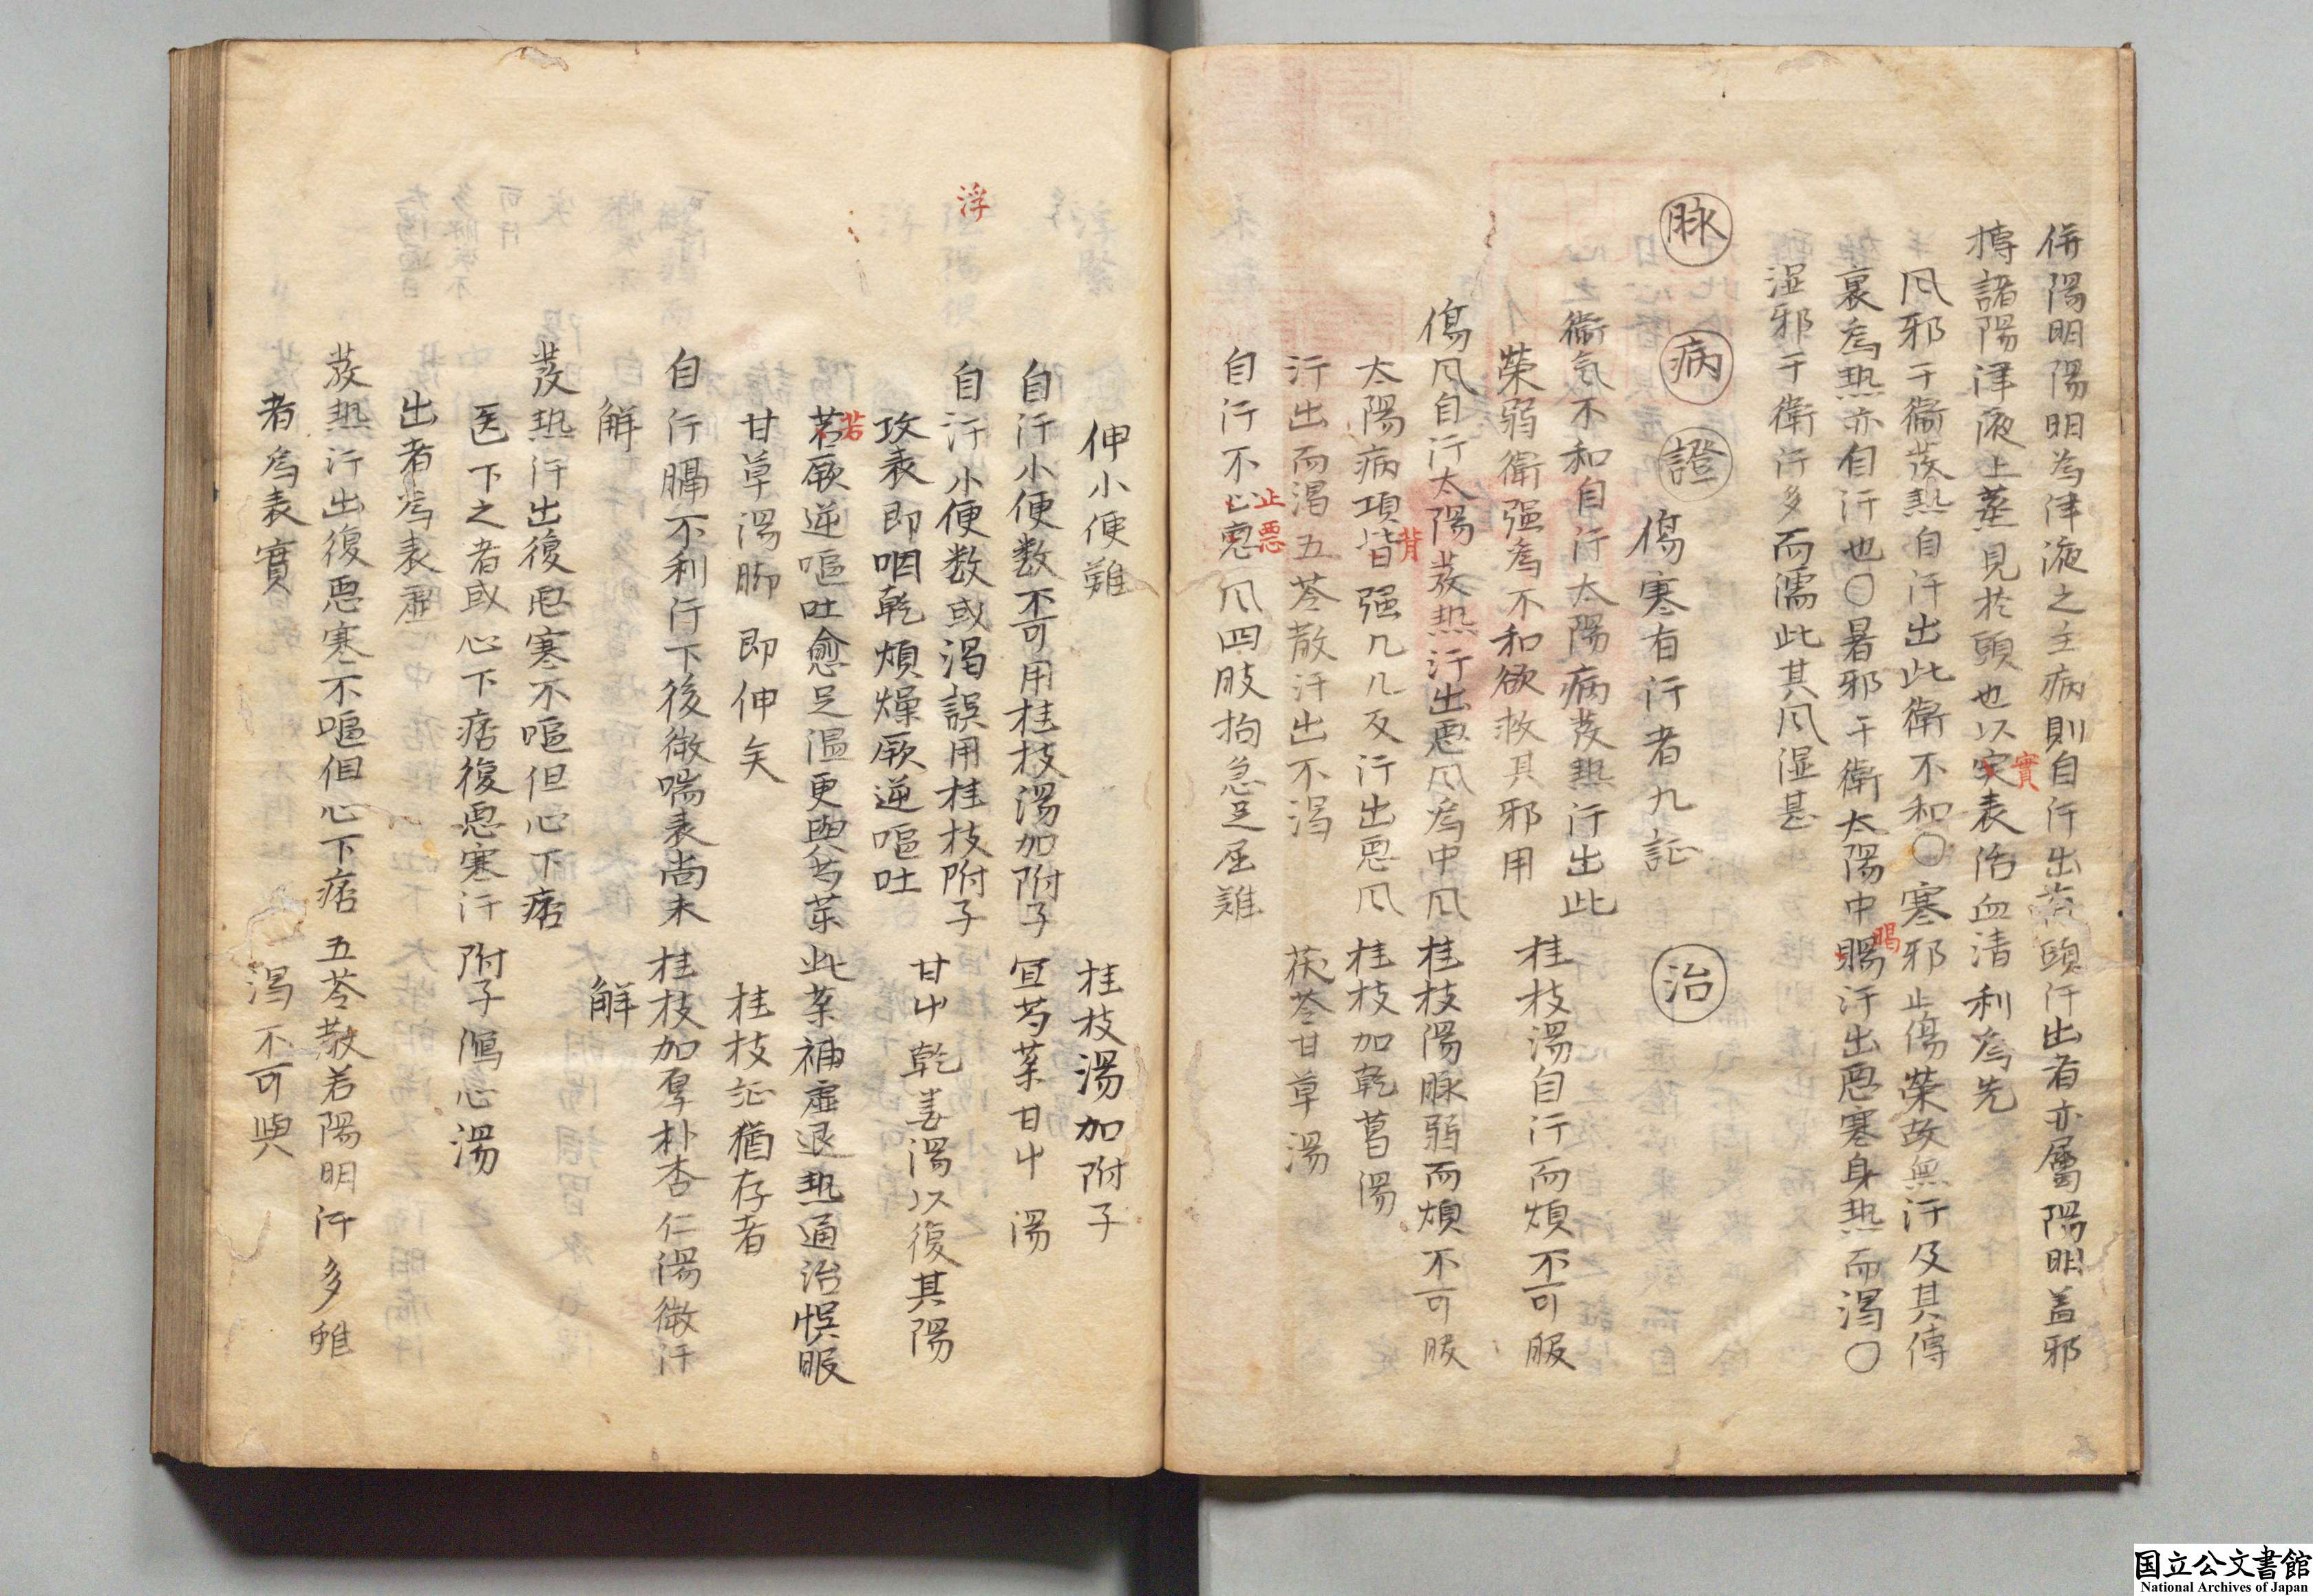 併陽明陽明為津液之主病則自汗出若頭汗出者亦屬陽明盖邪
摶諸陽津液上蒸見扵頭也以実表活血清利為先
實
風邪干衞䓃热自汗出此衛不和〇寒邪止傷榮故無汗及其傳
裏為热亦自汗也〇暑邪干衛太陽中暍汗出恶寒身热而渴〇
暍
湿邪干衛汗多而濡此其風湿甚
脉 病 證 治
傷寒有汗者九証
衞気不和自汗太陽病䓃熱汗出此
榮弱衛强為不和欲救其邪用
桂枝湯自汗而煩不可服
傷風自汗太陽䓃热汗出恶風為中風
桂枝陽脉弱而煩不可服
太陽病項背强几几反汗出恶風
背
桂枝加乾葛湯
汗出而渴五苓散汗出不渴
茯苓甘草湯
自汗不止恶風四肢拘急足屈難
止悪
伸小便難
桂枝湯加附子
自汗小便数不可用桂枝湯加附子
宜芍薬甘中湯
浮
自汗小便数或渴誤用桂枝附子
甘中乾姜湯以復其陽
攻表即咽乾煩燥厥逆嘔吐
若厥逆嘔吐愈足温更與芍薬
若
此薬補虚退热通治悞服
甘草湯脚 即伸矣
桂枝証猶存者
自汗膈不利汗下後微喘表尚未
解
桂枝加厚朴杏仁湯微汗
解
䓃热汗出復恶寒不嘔但心下痞
医下之者或心下痞復恶寒汗
附子㵼心湯
出者為表虚
䓃熱汗出復恶寒不嘔但心下痞
五苓散若陽明汗多雖
者為表實
渴不可與
国立公文書館
National Archives of Japan